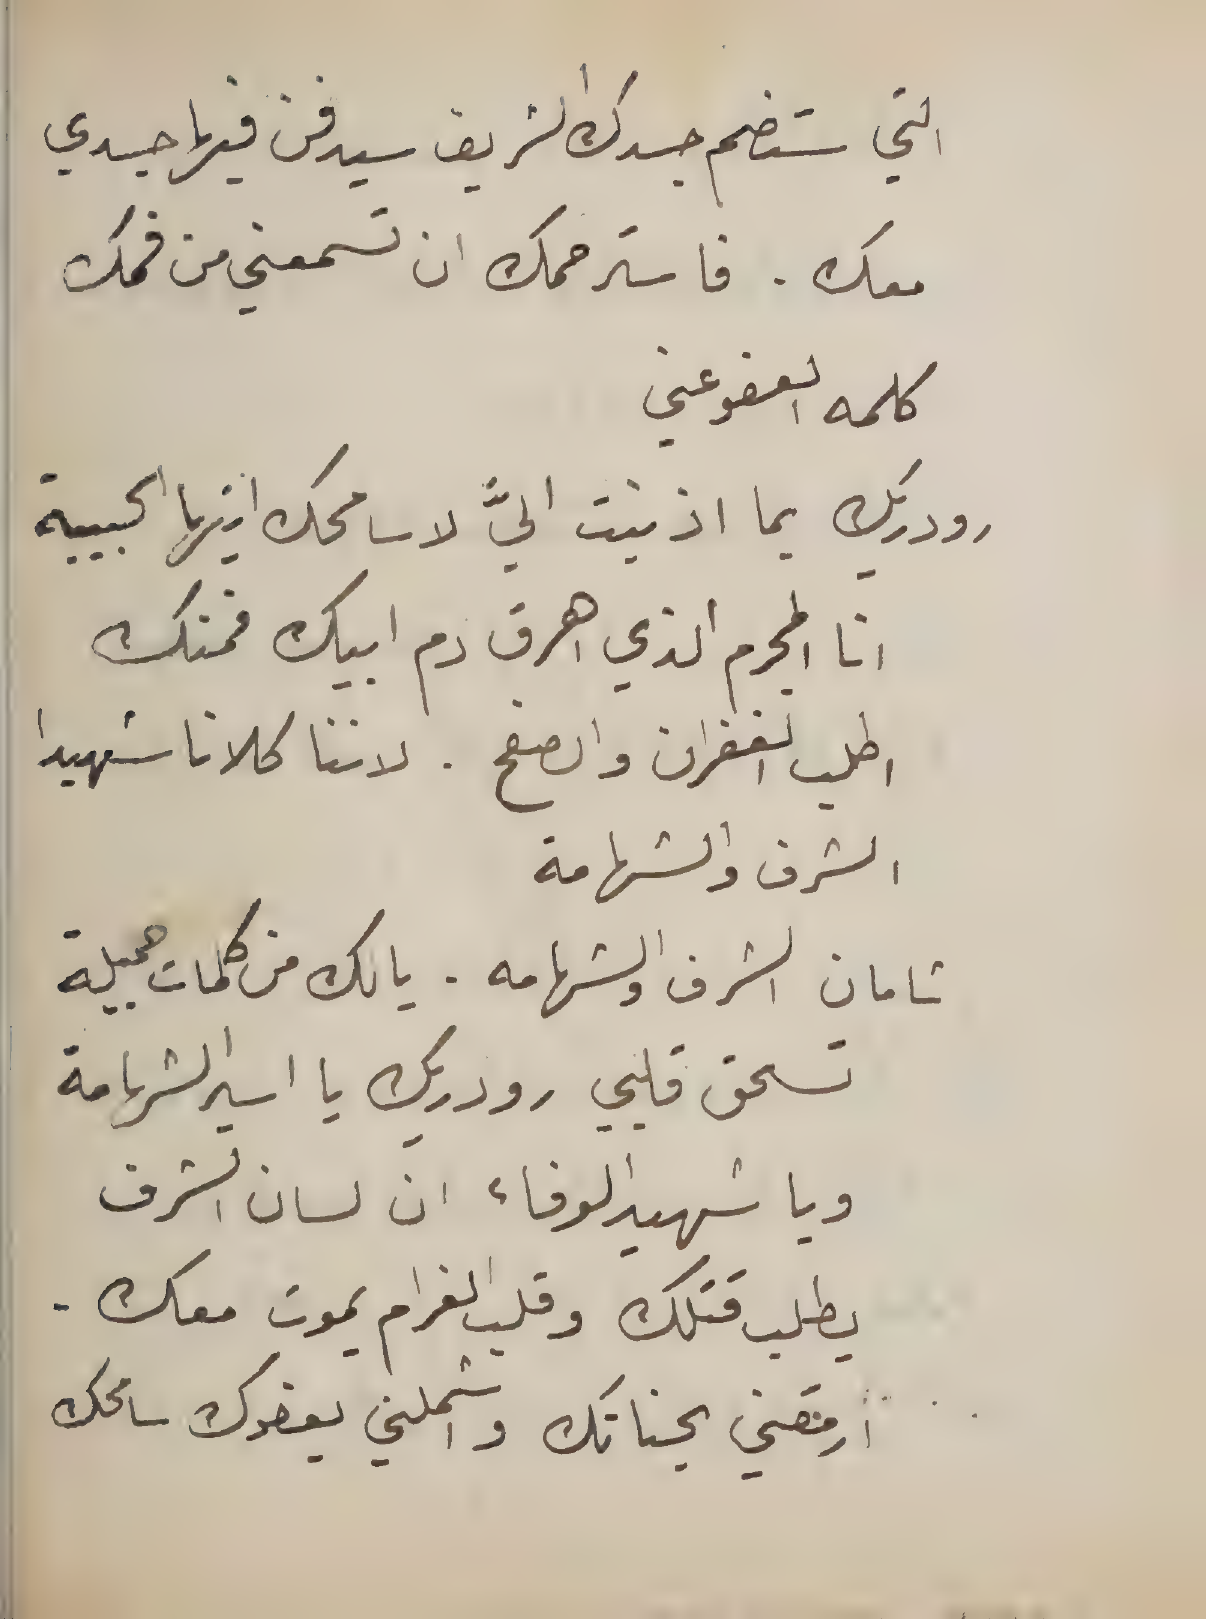 التي ستضم جسدك الشريف سيدفن فيها جسدي
معك . فاسترحمك ان تسمعني من فمك
كلمه العفو عني
رودريك بما اذنبت اليَّ لاسامحك ايتها الحبيبة
انا المجرم الذي اهرق دم ابيك فمنك
اطلب الغفران والصفح . لاننا كلانا شهيدا
الشرف والشهامة
شامان الشرف والشهامه . يالك من كلمات جميلة
تسحق قلبي رودريك يا اسير الشهامة
ويا شهيد الوفاء ان لسان الشرف
يطلب قتلك وقلب الغرام يموت معك .
ارمقني بحنانك واشملني بعفوك سامحك